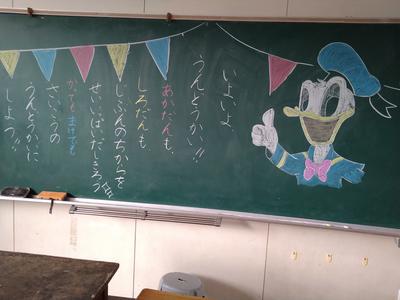 いよいよ、
うんどうかい!!
あかだんも、
しろだんも
じぶんのちからを
せいいっぱいだしきろう!!
かっても まけても
さいこうの
うんどうかいに
しよう!!